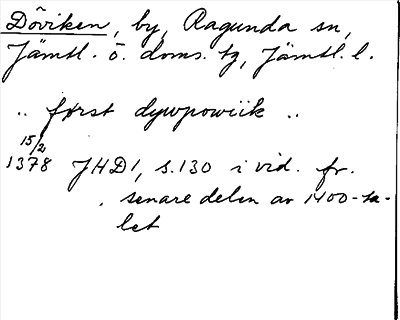 Döviken, by, Ragunda sn,
Jämtl. ö. doms. tg, Jämtl. l.
.. først dywpowiik ..
15/2
1378 JHD1, s. 130 i vid. fr.
senare delen av 1400-ta-
let